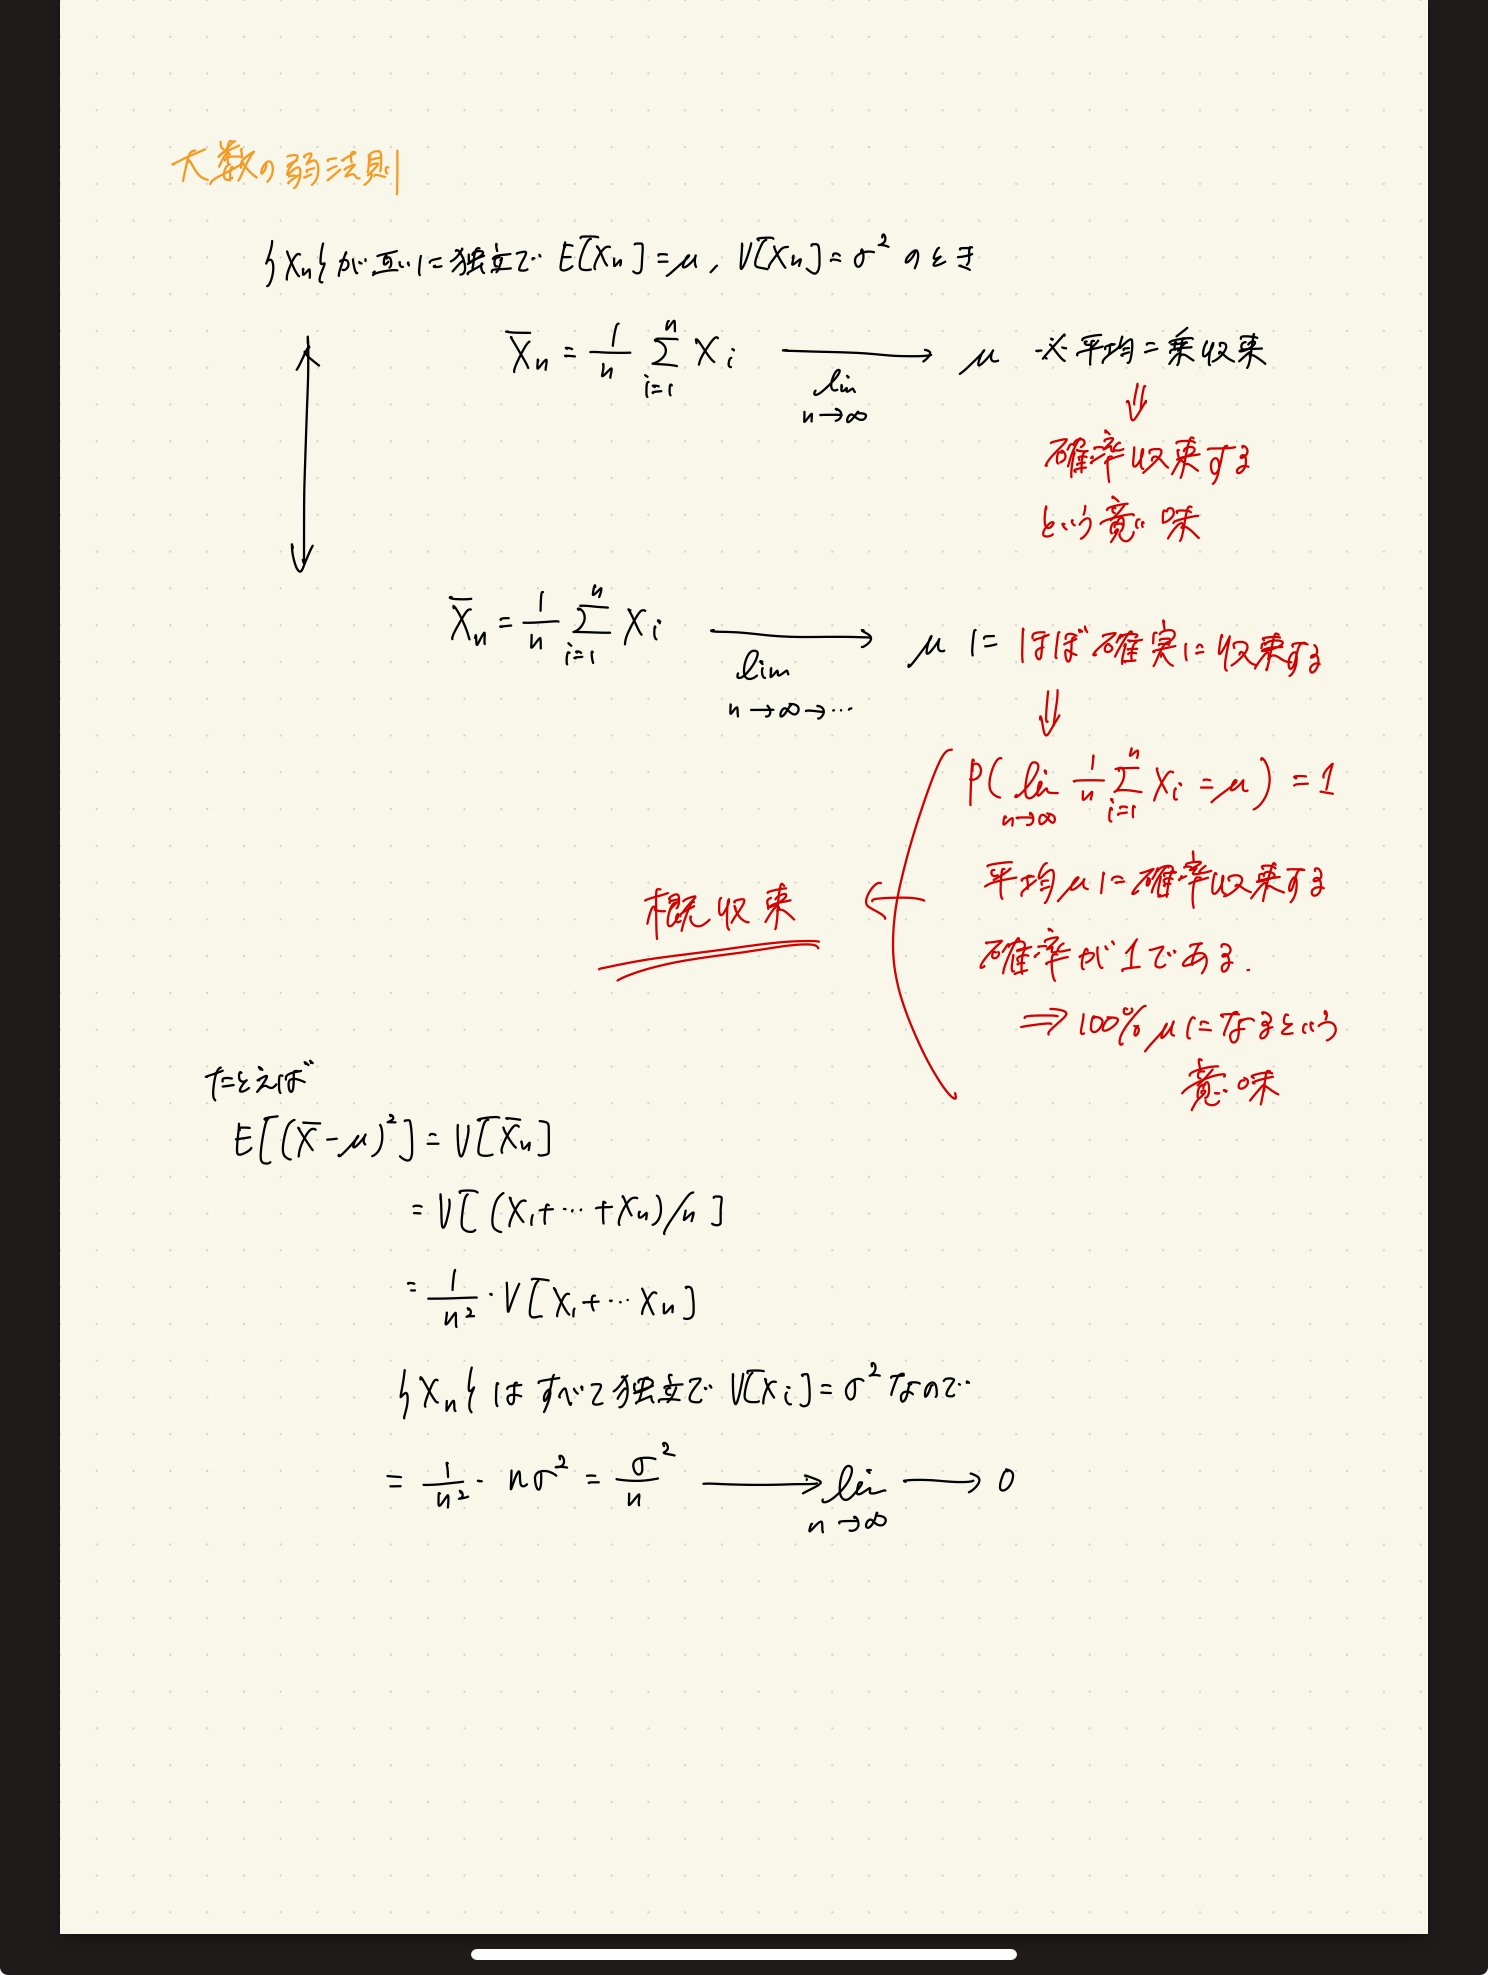 大数の弱法則
{Xn} が互いに独立で E[Xn]=μ, V[Xn]=σ² のとき
X̄n = 1/n Σ[i=1→n] Xi → lim n→∞ μ ※平均二乗収束
⇓
確率収束する
という意味
X̄n = 1/n Σ[i=1→n] Xi → lim n→∞→… μ に ほぼ確実に収束する
⇓
P( lim n→∞ 1/n Σ[i=1→n] Xi = μ ) = 1
平均μに確率収束する
概収束 ←
確率が1である.
⇒ 100% μになるという
意味
たとえば
E[(X̄-μ)²] = V[X̄n]
= V[(X₁+…+Xn)/n]
= 1/n² · V[X₁+…Xn]
{Xn} はすべて独立で V[Xi]=σ² なので
= 1/n² · nσ² = σ²/n → lim n→∞ → 0